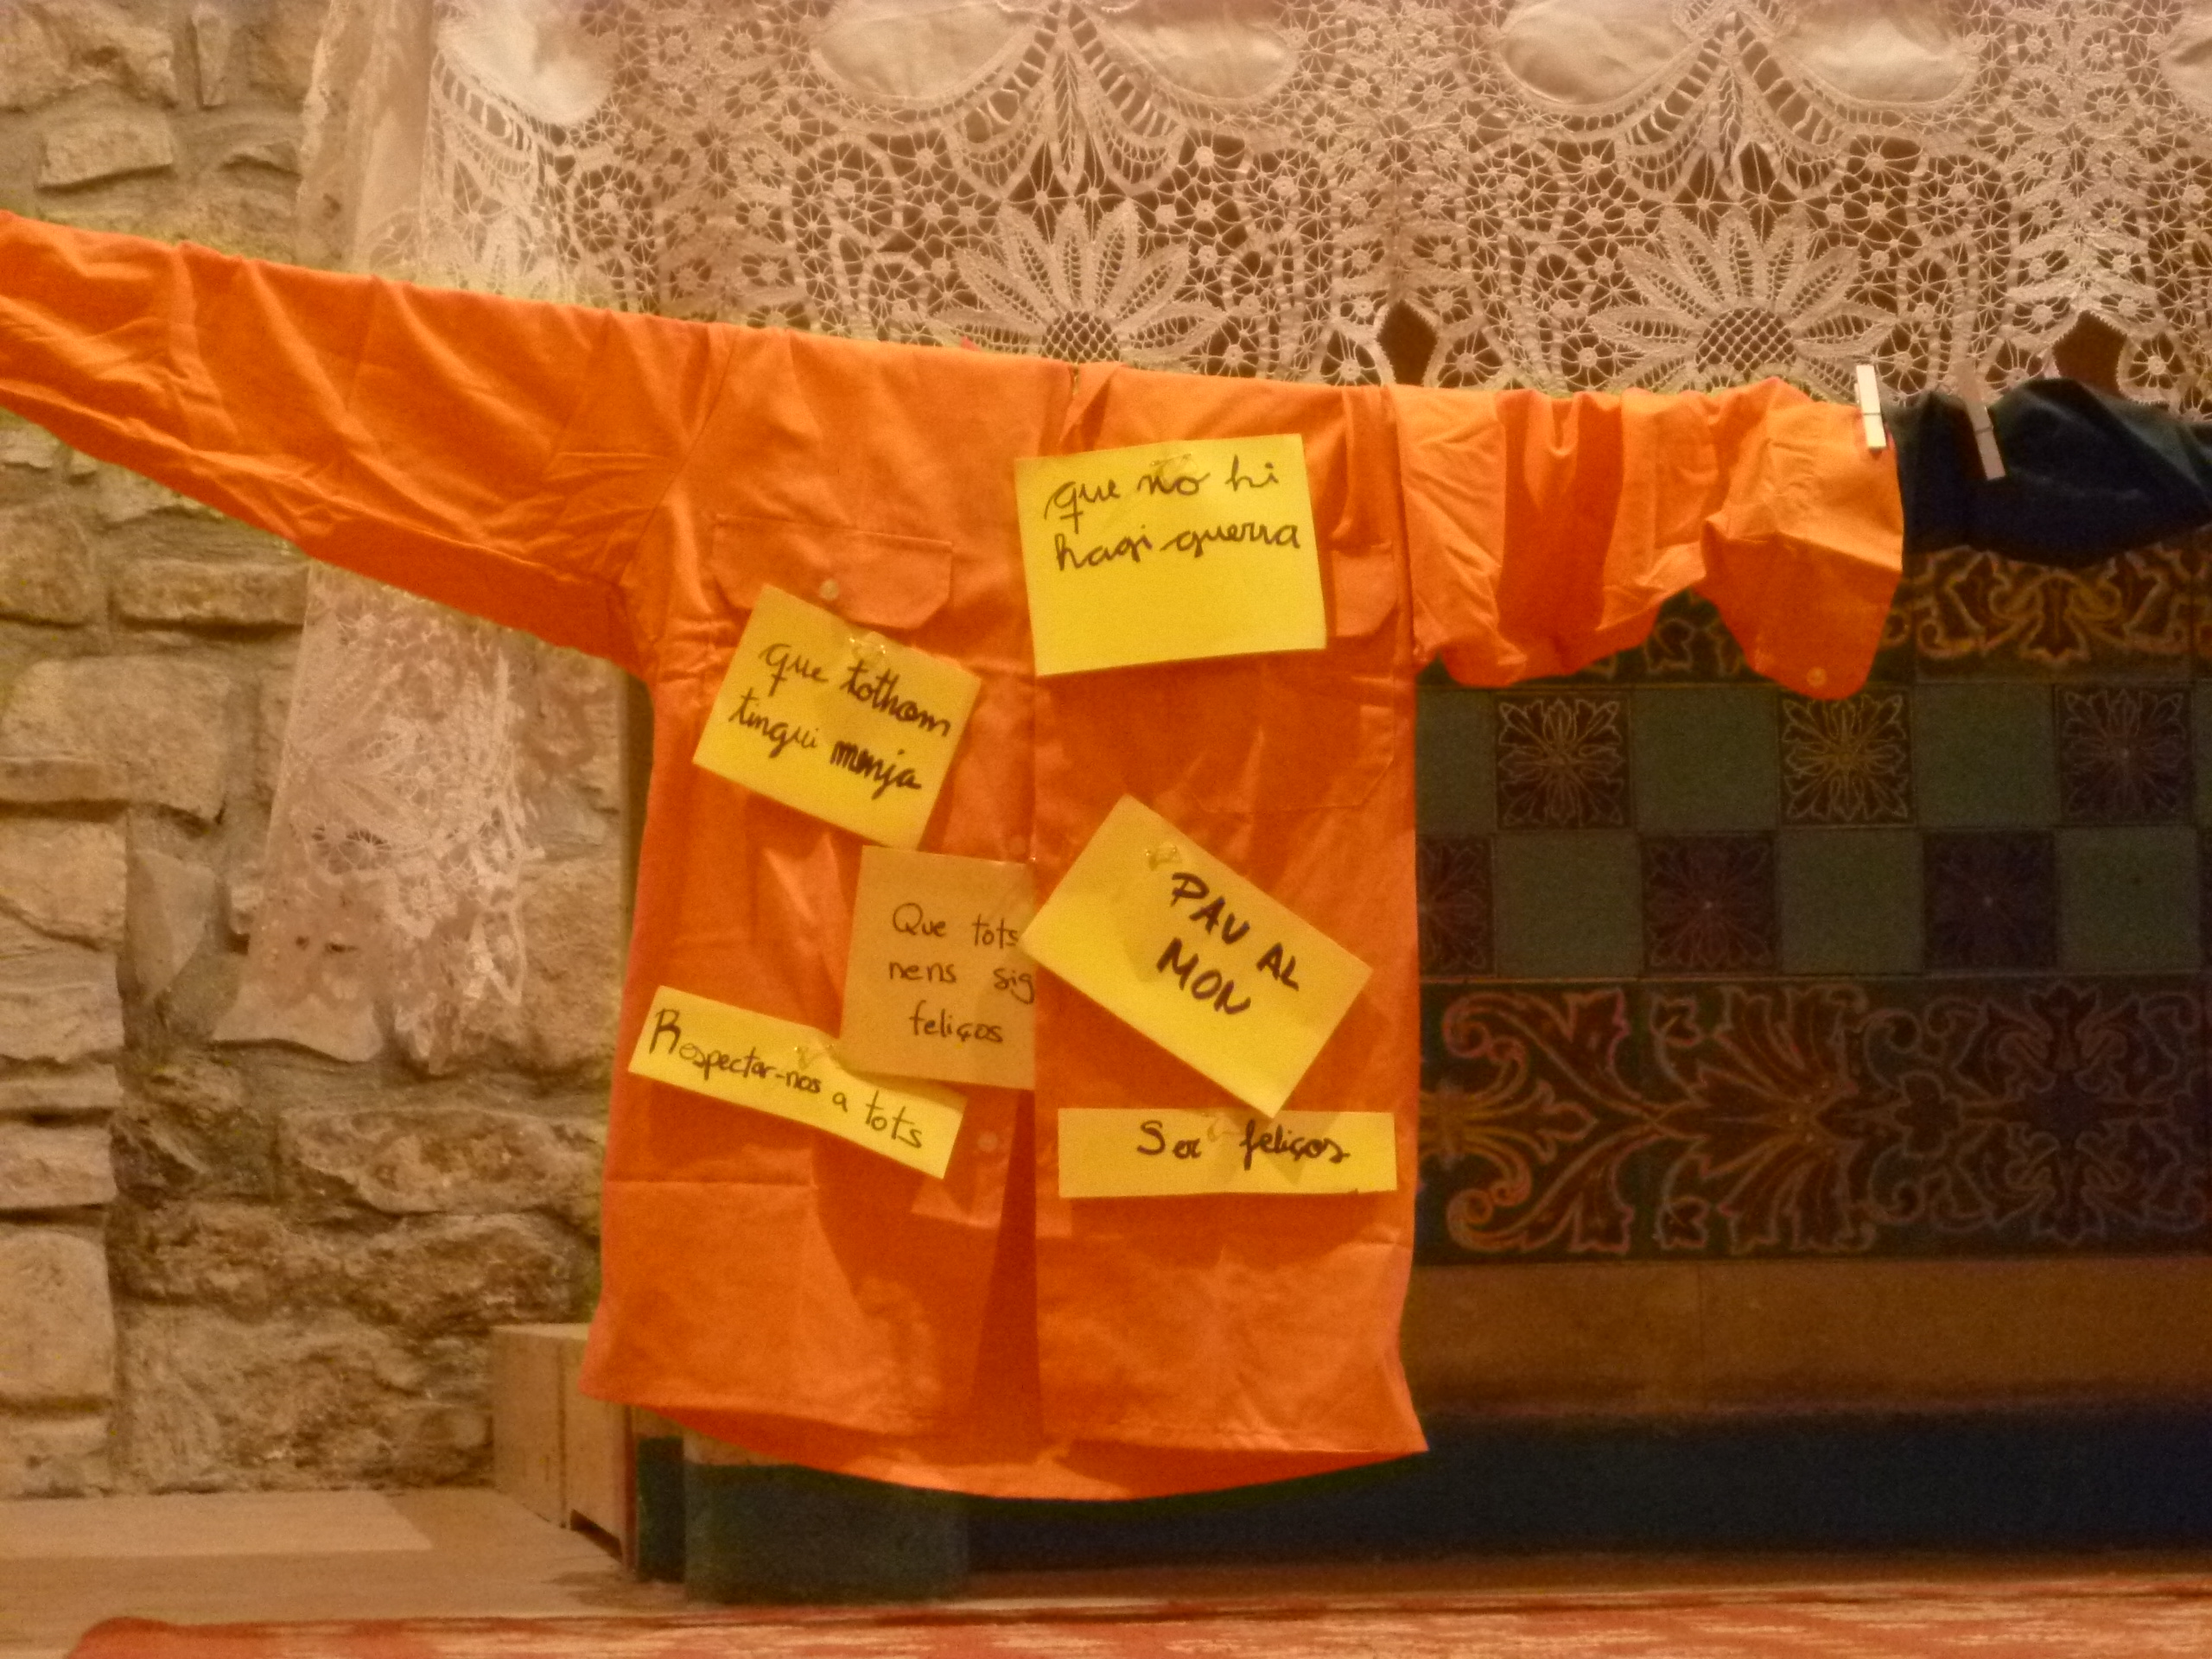 que no hi
hagi guerra
que tothom
tingui menja
Que tots
nens sig
feliços
PAU AL
MON
Respectar-nos a tots
Ser feliços